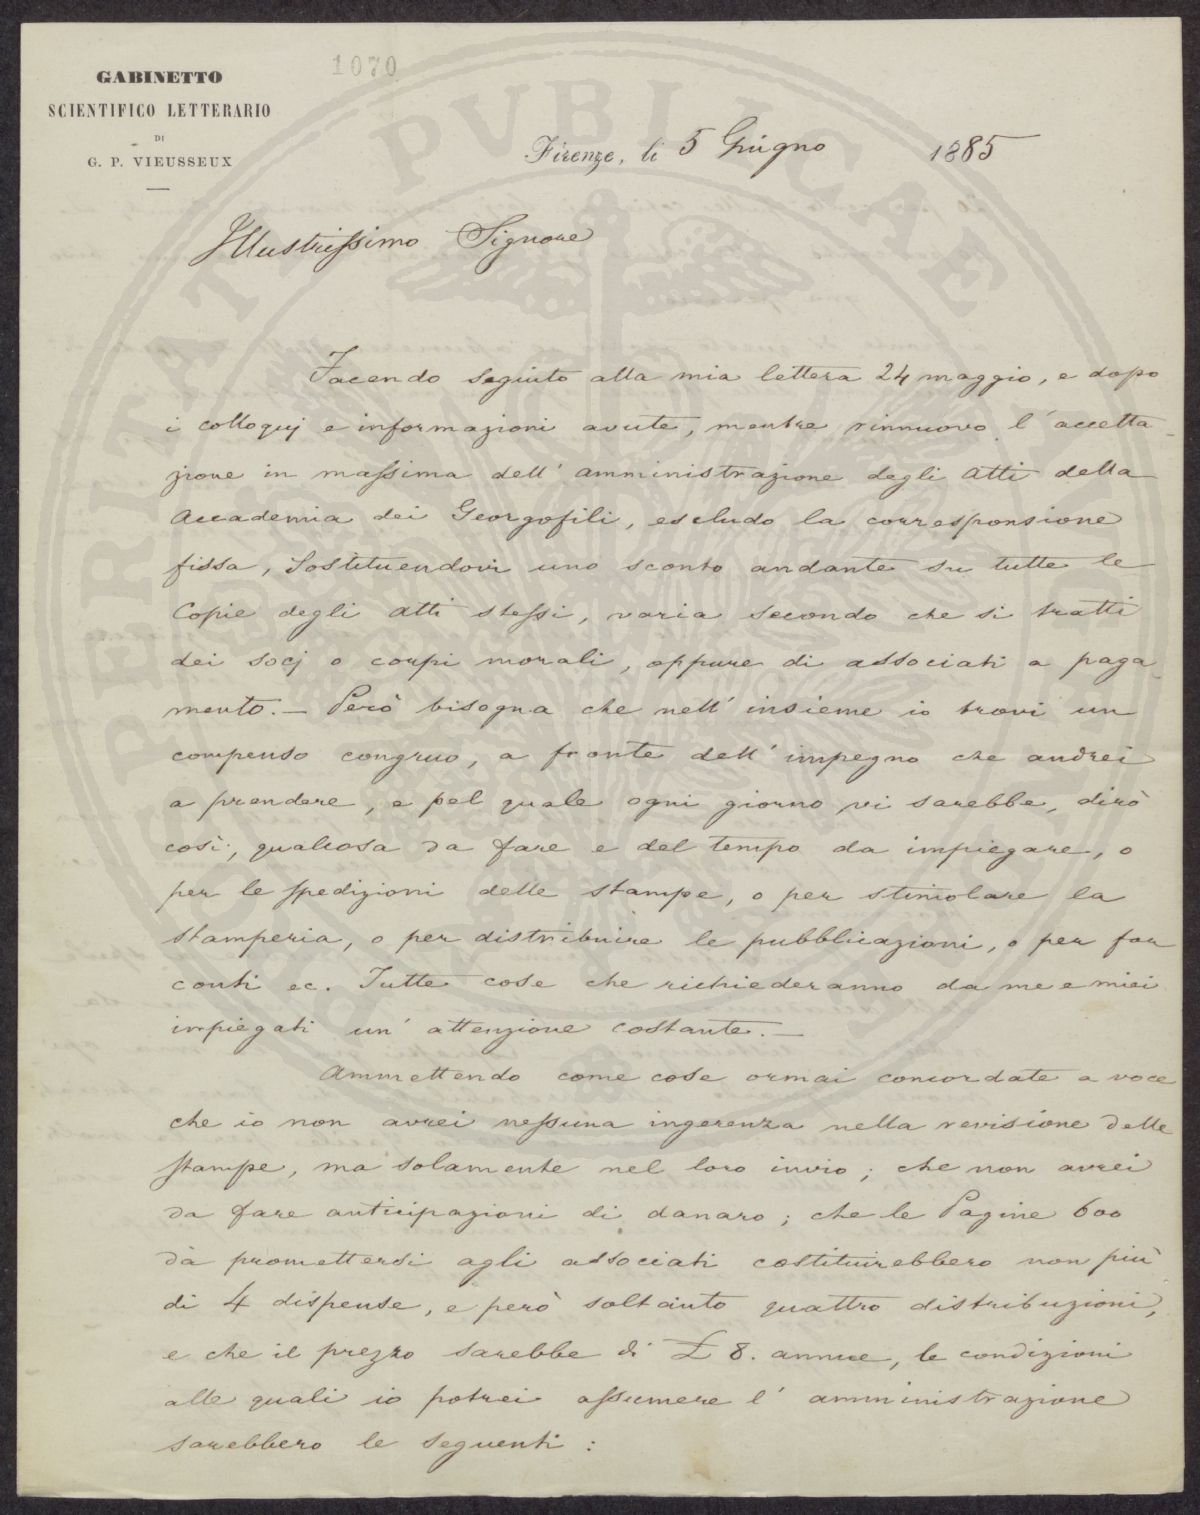 GABINETTO
SCIENTIFICO LETTERARIO
DI
G. P. VIEUSSEUX
1070
Firenze, li 5 Giugno 1885
Illustrissimo Signore
Facendo seguito alla mia lettera 24 maggio, e dopo
i colloquj e informazioni avute, mentre rinnuovo l'accetta-
zione in massima dell'amministrazione degli Atti della
Accademia dei Georgofili, escludo la corresponsione
fissa, sostituendovi uno sconto andante su tutte le
Copie degli Atti stessi, varia secondo che si tratti
dei socj o corpi morali, oppure di associati a paga-
mento.— Però bisogna che nell'insieme io trovi un
compenso congruo, a fronte dell'impegno che andrei
a prendere, e pel quale ogni giorno vi sarebbe, dirò
così, qualcosa da fare e del tempo da impiegare, o
per le spedizioni delle stampe, o per stimolare la
stamperia, o per distribuire le pubblicazioni, o per far
conti ec. Tutte cose che richiederanno da me e miei
impiegati un'attenzione costante.—
Ammettendo come cose ormai concordate a voce
che io non avrei nessuna ingerenza nella revisione delle
stampe, ma solamente nel loro invio; che non avrei
da fare anticipazioni di danaro; che le Pagine 600
da promettersi agli associati costituirebbero non più
di 4 dispense, e però soltanto quattro distribuzioni,
e che il prezzo sarebbe di £ 8. annue, le condizioni
alle quali io potrei assumere l'amministrazione
sarebbero le seguenti: